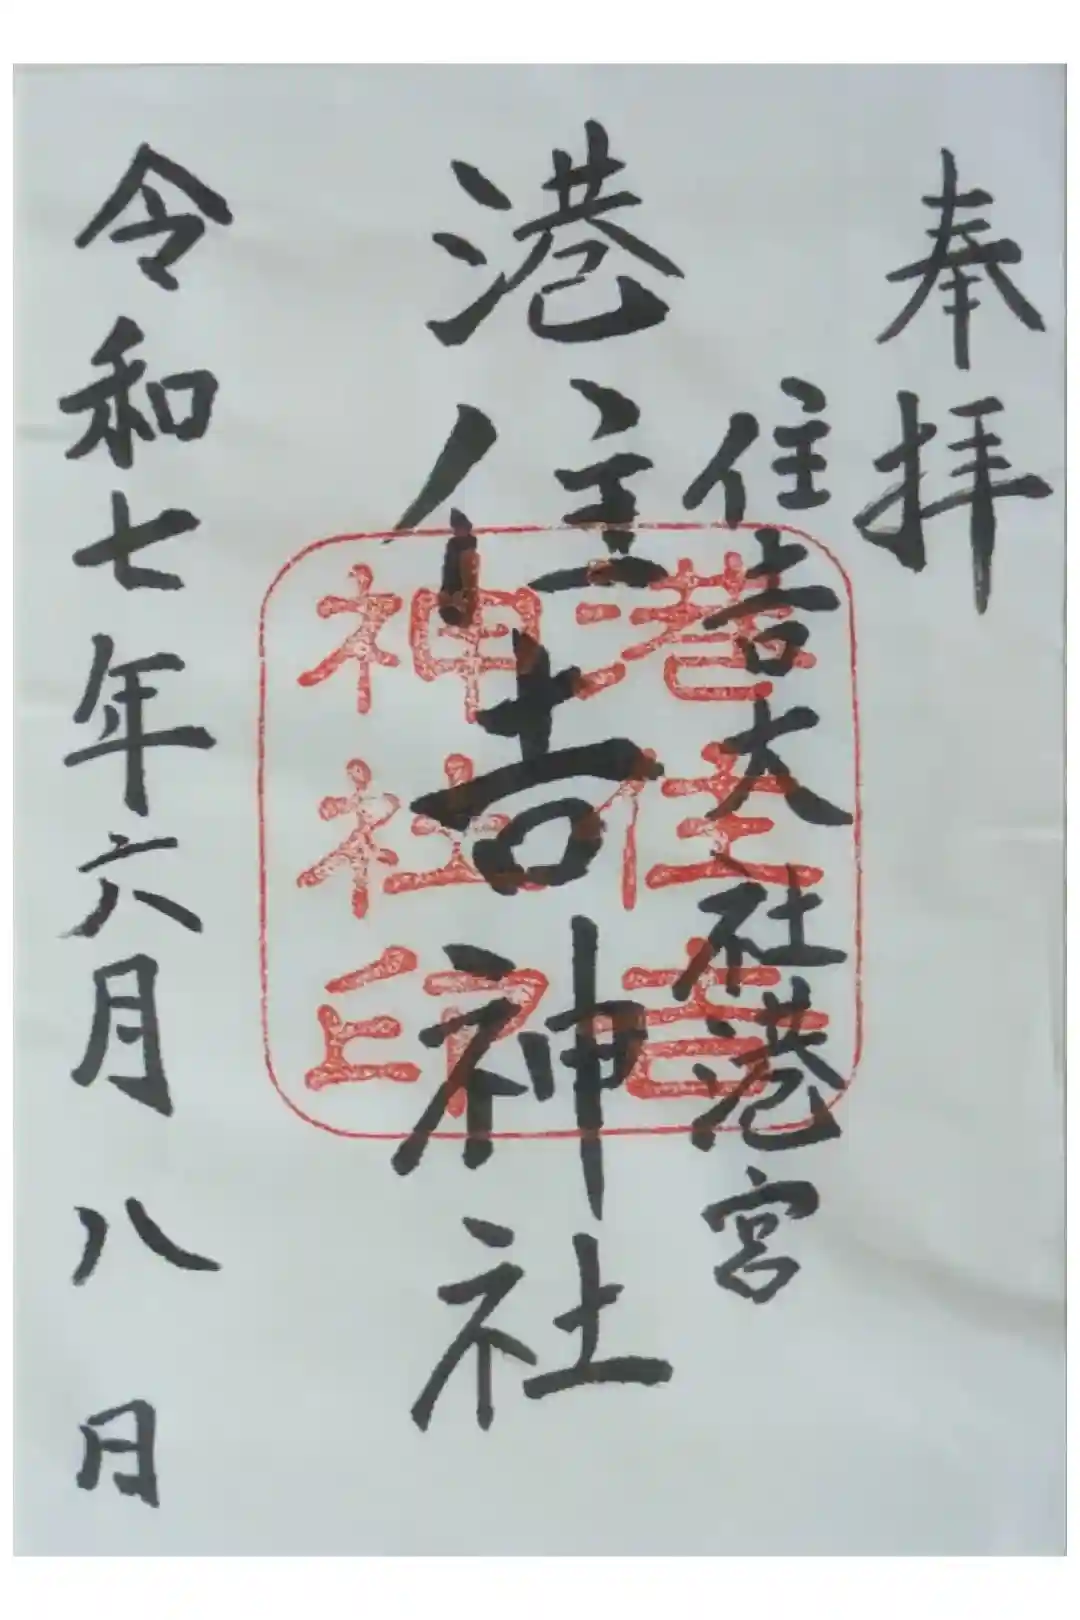 奉拝
住吉大社港宮
港住吉神社
港住吉
神社印
令和七年六月八日